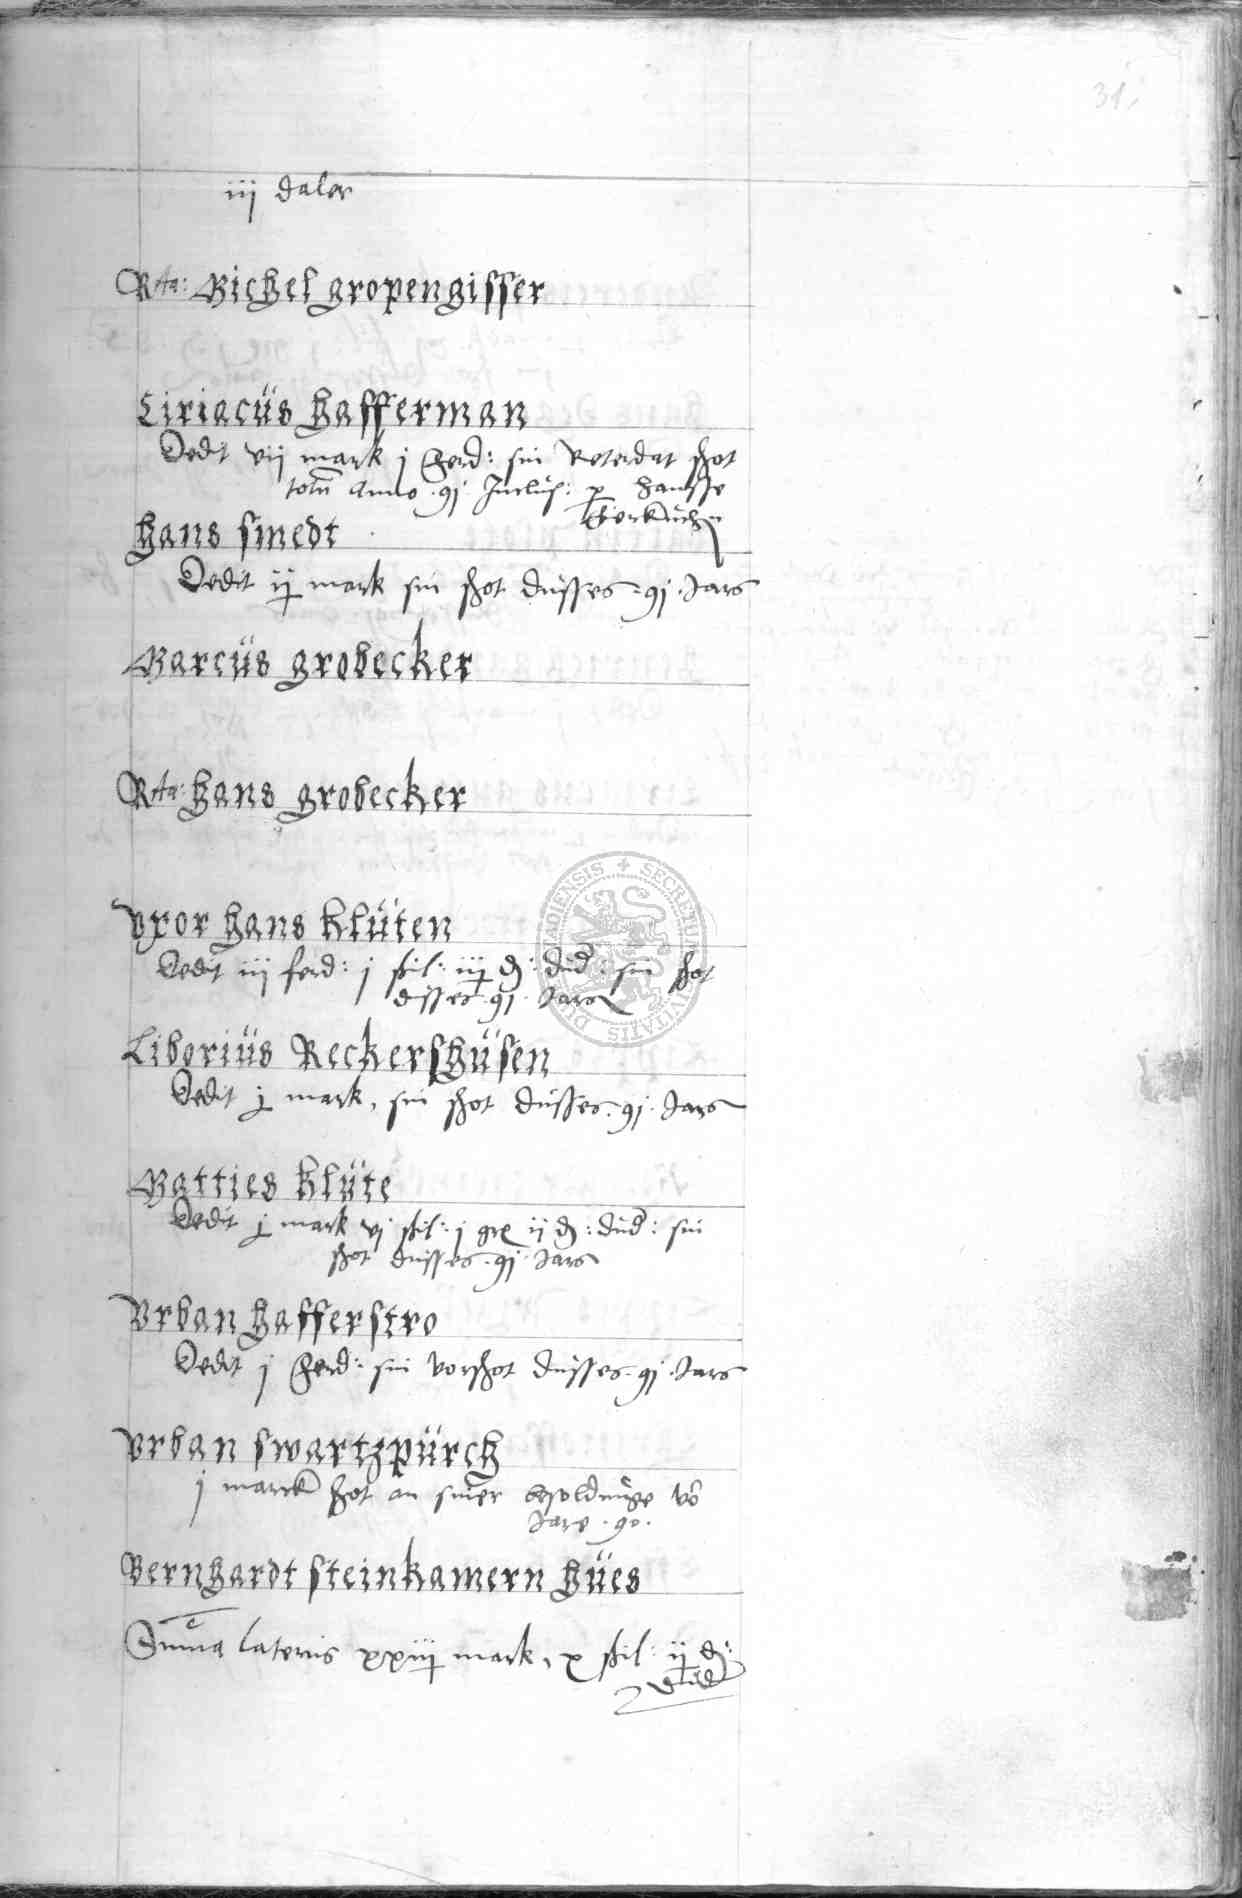 31
iij daler
Rta: Michel gropengisser
Ciriacüs hafferman
Dedit vij mark j ferd: sin Reterdat shot
totũ Anno 91 Inclus: p hansse
hans smedt
Dedit ij mark sin shot dusses 91 Jars
Marcüs grobecker
Rta: hans grobecker
vxor hans klüten
Dedit iij ferd: j shil: iij d: dud: sin shot
disses 91 Jars
SECRETUM CIVITATIS
Liborius Reckershüsen
Dedit j mark, sin shot dusses 91 Jars
Matties klüte
Dedit j mark vj shil: j gr ij d: dud: sin
shot dusses 91 Jars
Vrban hafferstro
Dedit j ferd: sin vorshot dusses 91 Jars
vrban swartzpürch
j marck shot an siner besoldinge vō
Jare 90.
Bernhardt steinkamern hües
Suma lateris xxiij mark, x shil: ij d:
dud